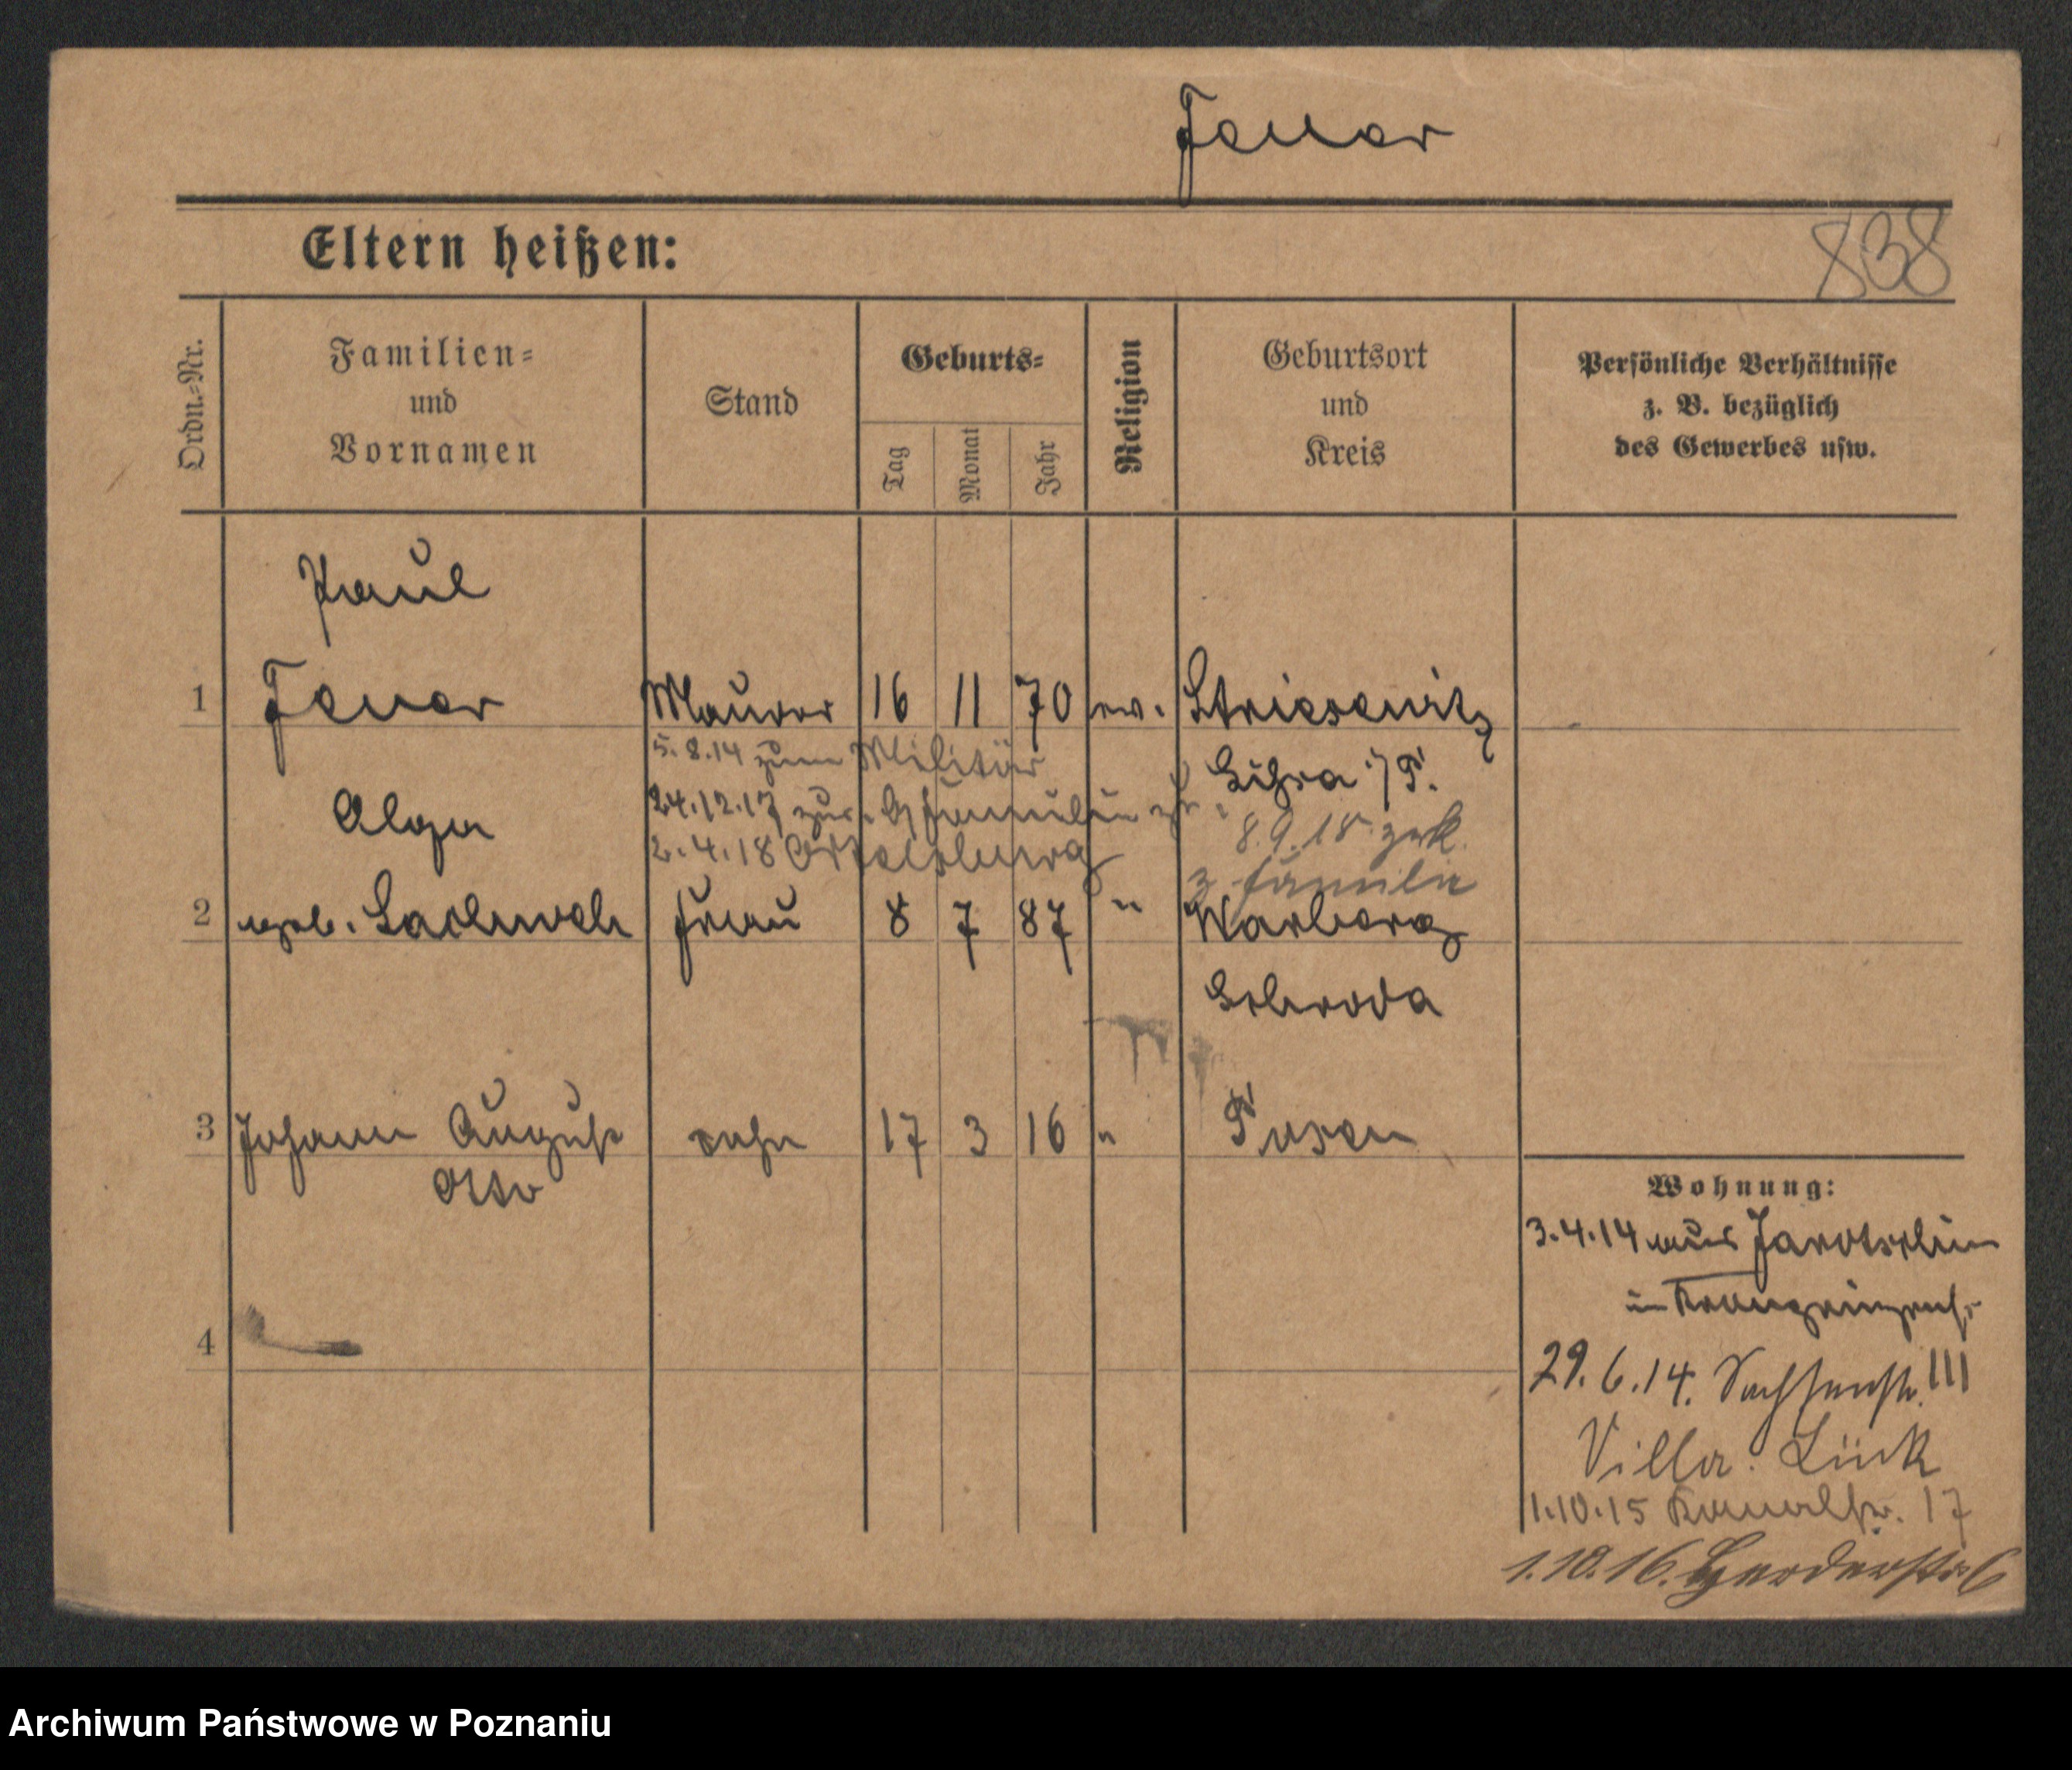 Feuer
838
Eltern heißen:
Ordn.-Nr.
Familien-
und
Vornamen
Stand
Geburts-
Tag
Monat
Jahr
Religion
Geburtsort
und
Kreis
Persönliche Verhältnisse
z. B. bezüglich
des Gewerbes usw.
Paul
1 Maurer 16 11 70 ev. Striesewitz
5.8.14 zum Militär
24.12.17 zur
8.9.18 zrk.
2.4.18 Ortelsburg
z Familie
2 geb. Frau 8 7 87 " Warberg
Schroda
3 Johann August Sohn 17 3 16 " Posen
Otto
4
Wohnung:
3.4.14 aus Jarotschin
29.6.14. Sachsenstr. III
Villa Lück
1.10.15 Kanalstr. 17
1.10.16. Herderstr 6
Archiwum Państwowe w Poznaniu